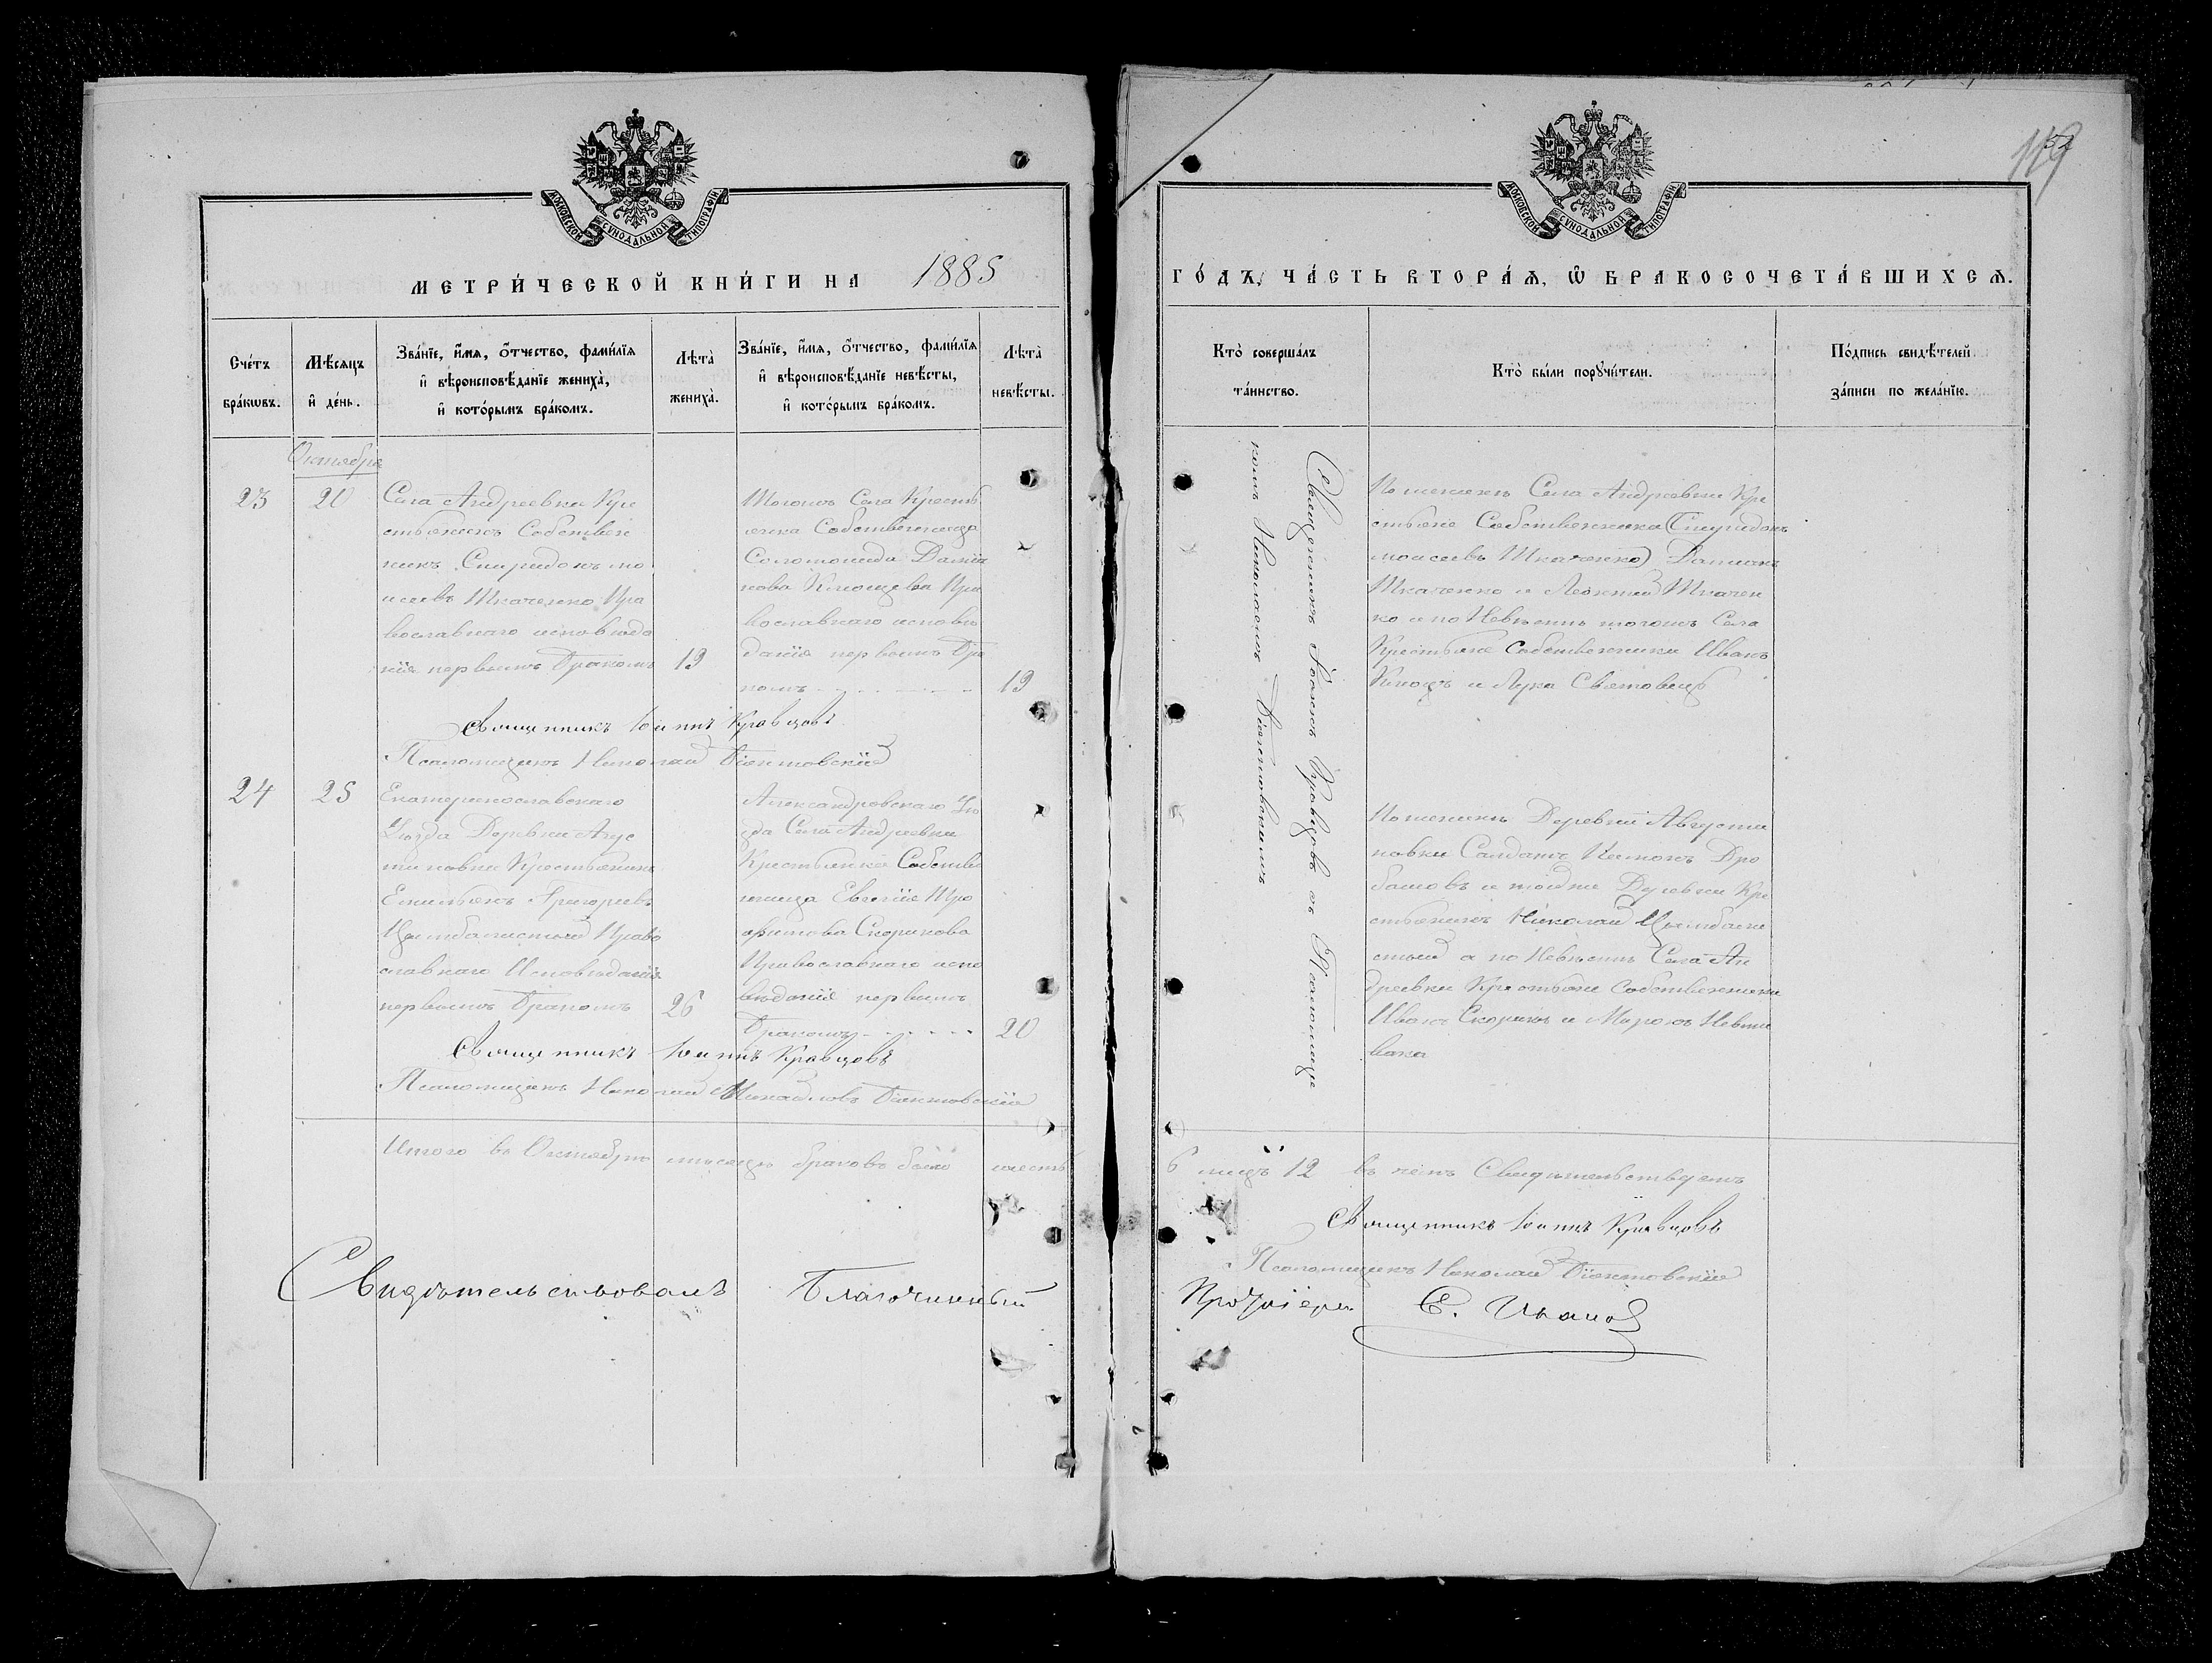 МОСКОВСКОЙ СѴНОДАЛЬНОЙ ТИПОГРАФІИ
МЕТРИ́ЧЕСКОЙ КНИ́ГИ НА 1885
Сче́тъ бра́кωвъ.
Мѣ́сяцъ и҆ де́нь.
Зва́нїе, и҆́мѧ, ѻ҆́тчество, фами́лїѧ и҆ вѣроисповѣ́данїе жениха̀, и҆ кото́рымъ бра́комъ.
Лѣ́та̀ жениха̀.
Зва́нїе, и҆́мѧ, ѻ҆́тчество, фами́лїѧ и҆ вѣроисповѣ́данїе невѣ́сты, и҆ кото́рымъ бра́комъ.
Лѣ́та̀ невѣ́сты.
Октября
23
20
Села Андреевки Кре
стьянинъ Собствен
никъ Спиридонъ мо
исеевъ Ткаченко Пра
вославнаго исповѣда
нія первымъ бракомъ
19
Тогожъ Села Кресть
янка Собственница
Соломонида Даміа
нова Клющева Пра
вославнаго исповѣ
данія первымъ бра
комъ
19
Священникъ Іоаннъ Кравцовъ
Псаломщикъ Николай Біантовскій
24
25
Екатеринославскаго
Уѣзда Деревни Авгус
тиновки Крестьянинъ
Емильянъ Григорьевъ
Цимбалистый Право
славнаго Исповѣданія
первымъ бракомъ
26
Александровскаго Уѣ
да Села Андреевки
Крестьянка Собствен
ница Евгенія Про
фитова Скорикова
Православнаго испо
вѣданія первымъ
бракомъ
20
Священникъ Іоаннъ Кравцовъ
Псаломщикъ Николай Михайловъ Біантовскій
Итого въ Октябрѣ мѣсяцѣ браковъ было шесть
Свидѣтельствовалъ Благочинный
119
МОСКОВСКОЙ СѴНОДАЛЬНОЙ ТИПОГРАФІИ
ГО́ДЪ, ЧА́СТЬ ВТОРА́Ѧ, Ѽ БРАКОСОЧЕТА́ВШИХСѦ.
Кто̀ соверша́лъ та́инство.
Кто̀ бы́ли порꙋчи́тели.
По́дпись свидѣ́телей за́писи по жела́нїю.
Священникъ Іоаннъ Кравцовъ съ Псаломщи
комъ Николаемъ Біантовскимъ
По женихѣ Села Андреевки Кре
стьяне Собственники (Спиридонъ
моисеевъ Ткаченко) Даміанъ
Ткаченко и Леонтій Ткачен
ко а по Невѣстѣ тогожъ Села
Крестьяне Собственники Иванъ
Клющъ и Лука Святовецъ
По женихѣ Деревни Августи
новки Солдатъ Кимонъ Дро
башовъ и тойже Деревни Кре
стьянинъ Николай Цымбали
стый а по Невѣстѣ Села Ан
дреевки Крестьяне Собственники
Иванъ Скорикъ и Миронъ Невши
вака
6 лицъ 12 въ чемъ Свидѣтельствуемъ
Священникъ Іоаннъ Кравцовъ
Псаломщикъ Николай Біантовскій
Протоіерей Е. Ивановъ